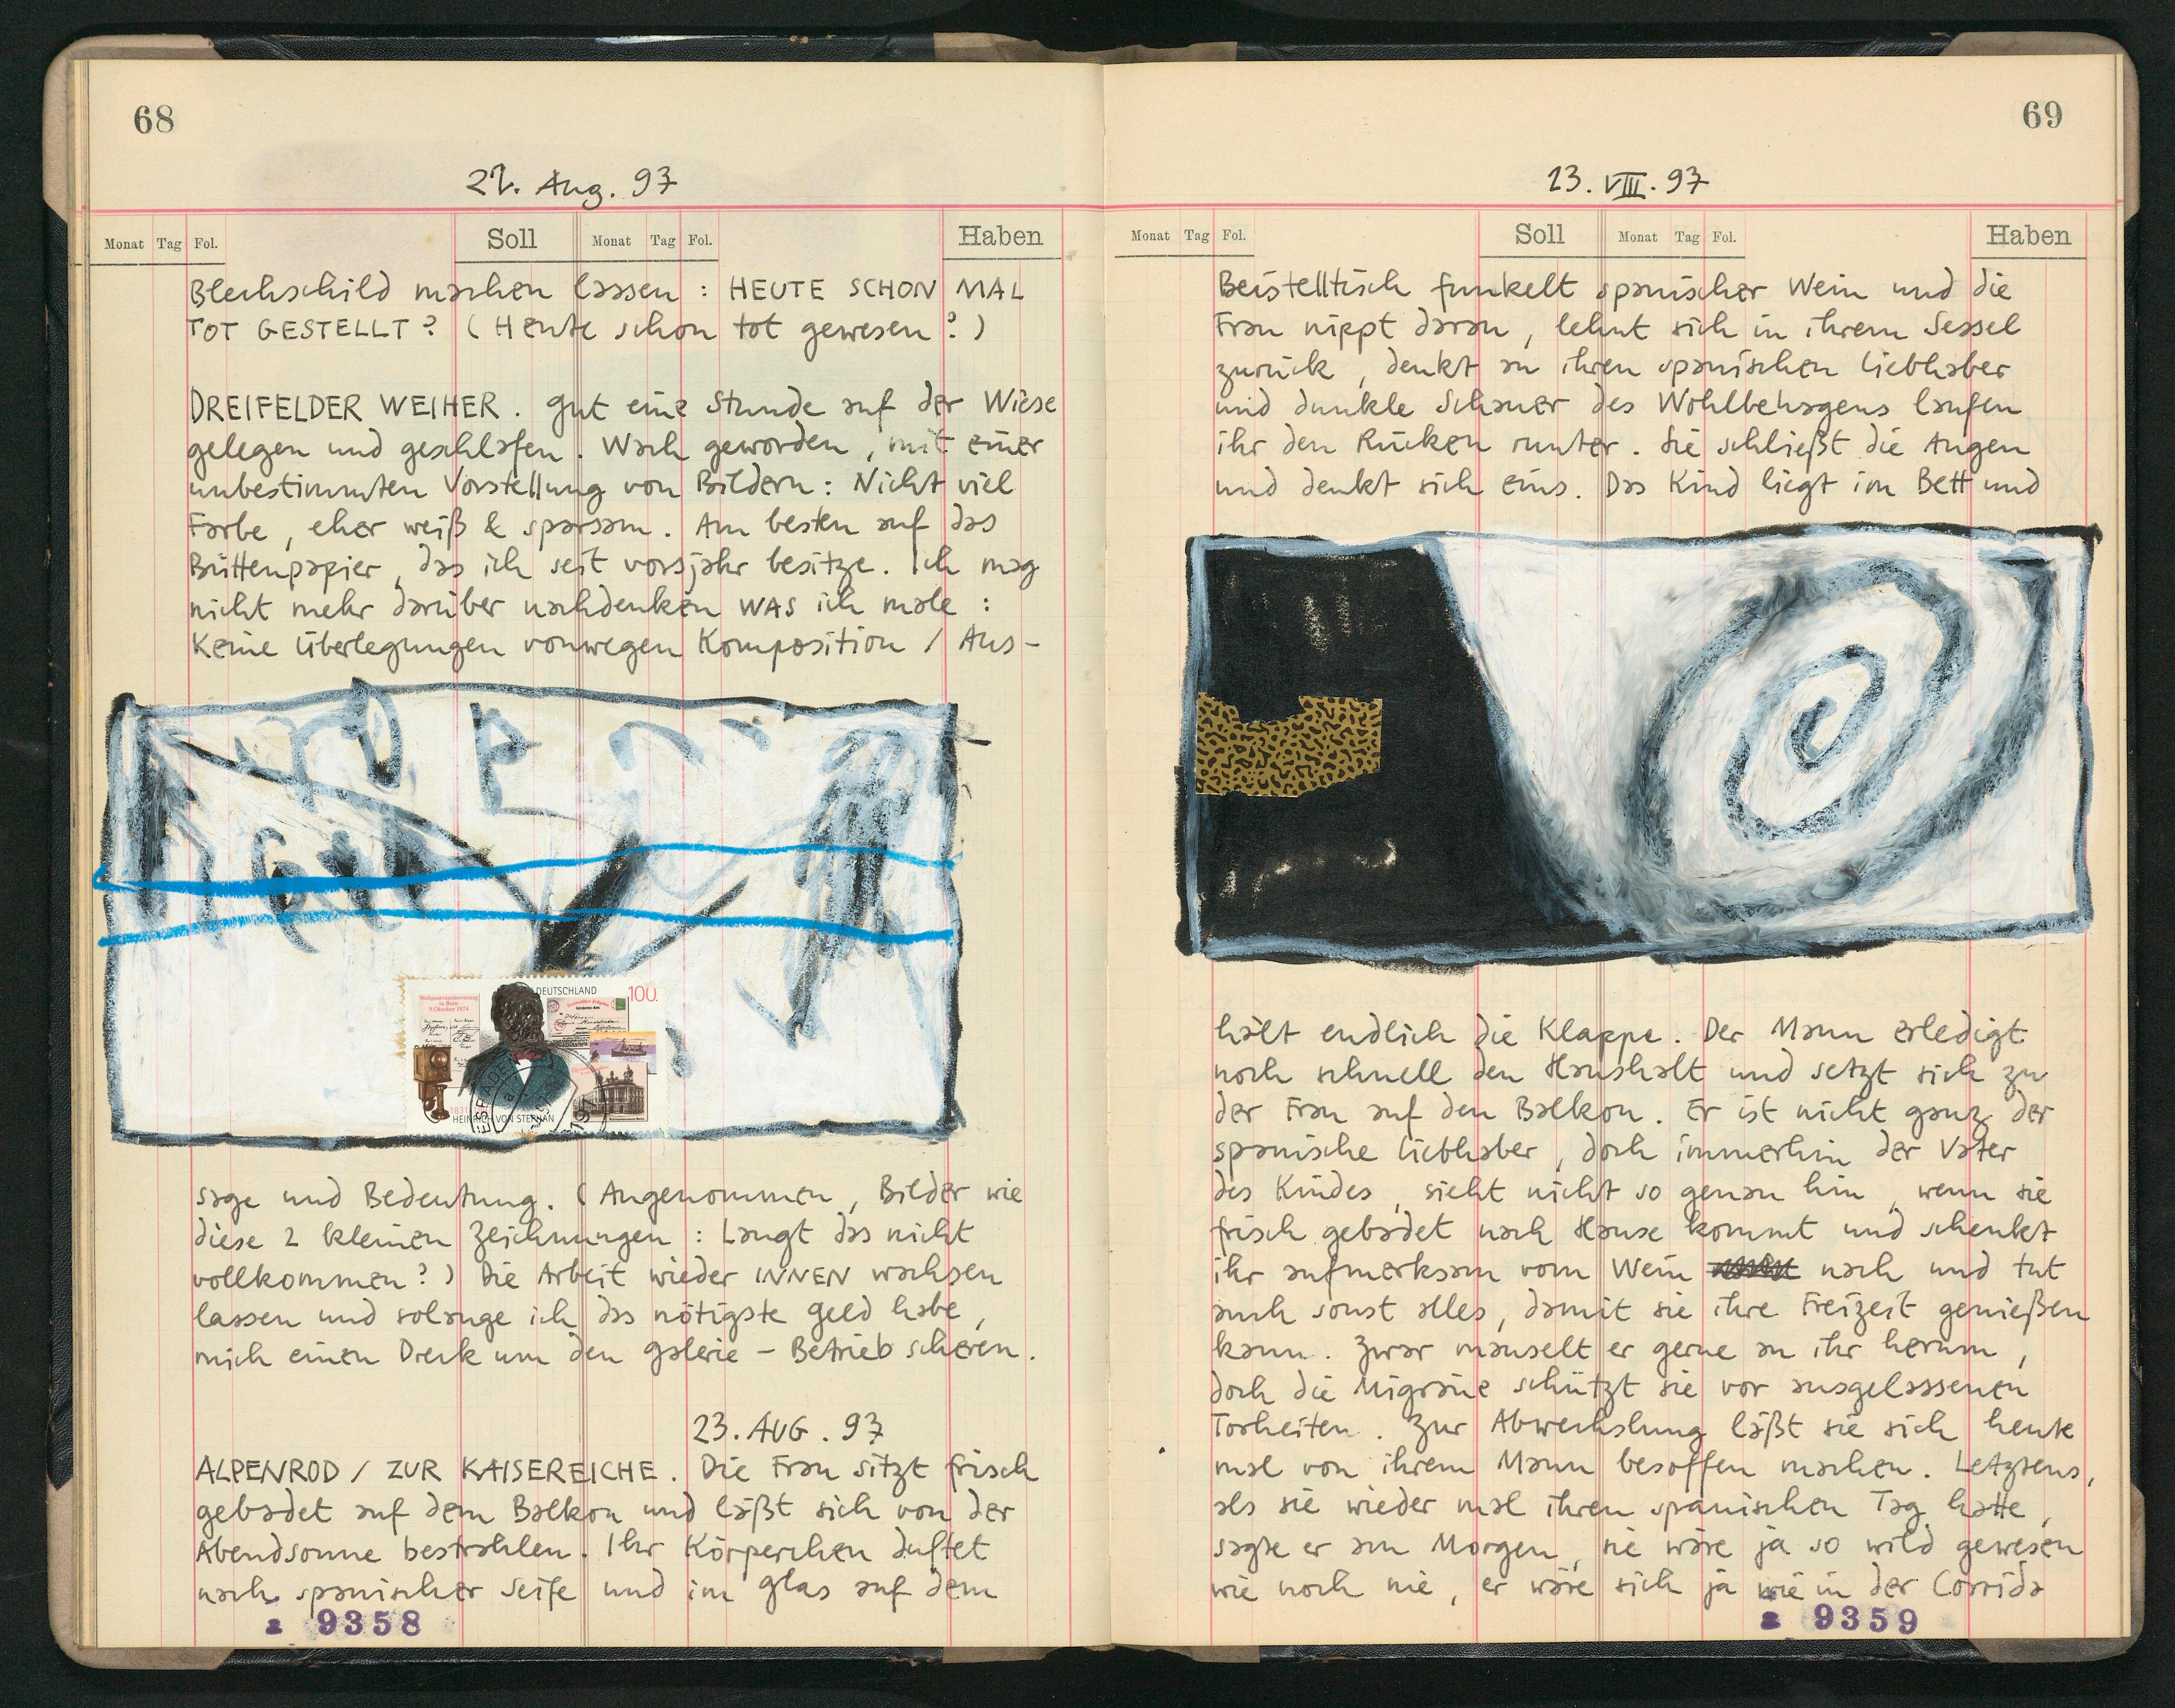 68
22. Aug. 97
Monat Tag Fol. Soll Monat Tag Fol. Haben
Blechschild machen lassen : HEUTE SCHON MAL
TOT GESTELLT ? ( Heute schon tot gewesen ? )
DREIFELDER WEIHER . Gut eine Stunde auf der Wiese
gelegen und geschlafen . Wach geworden , mit einer
unbestimmten Vorstellung von Bildern : Nicht viel
Farbe , eher weiß & sparsam . Am besten auf das
Büttenpapier , das ich seit vorsjahr besitze . Ich mag
nicht mehr darüber nachdenken WAS ich male :
Keine Überlegungen vonwegen Komposition / Aus-
Weltpostvereinsvertrag
in Bern
9. Oktober 1874
DEUTSCHLAND
100
1831
HEINRICH VON STEPHAN
sage und Bedeutung . ( Angenommen , Bilder wie
diese 2 kleinen Zeichnungen : Langt das nicht
vollkommen ? ) Die Arbeit wieder INNEN wachsen
lassen und solange ich das nötigste Geld habe ,
mich einen Dreck um den Galerie - Betrieb scheren .
23. AUG . 97
ALPENROD / ZUR KAISEREICHE . Die Frau sitzt frisch
gebadet auf dem Balkon und läßt sich von der
Abendsonne bestrahlen . Ihr Körperchen duftet
nach spanischer Seife und im Glas auf dem
9358
69
23. VIII. 97
Monat Tag Fol. Soll Monat Tag Fol. Haben
Beistelltisch funkelt spanischer Wein und die
Frau nippt daran , lehnt sich in ihrem Sessel
zurück , denkt an ihren spanischen Liebhaber
und dunkle Schauer des Wohlbehagens laufen
ihr den Rücken runter . Sie schließt die Augen
und denkt sich eins . Das Kind liegt im Bett und
hält endlich die Klappe . Der Mann erledigt
noch schnell den Haushalt und setzt sich zu
der Frau auf den Balkon . Er ist nicht ganz der
spanische Liebhaber , doch immerhin der Vater
des Kindes , sieht nicht so genau hin , wenn sie
frisch gebadet nach Hause kommt und schenkt
ihr aufmerksam vom Wein nach und tut
auch sonst alles , damit sie ihre Freizeit genießen
kann . Zwar mauselt er gerne an ihr herum ,
doch die Migräne schützt sie vor ausgelassenen
Torheiten . Zur Abwechslung läßt sie sich heute
mal von ihrem Mann besoffen machen . Letztens ,
als sie wieder mal ihren spanischen Tag hatte ,
sagte er am Morgen , sie wäre ja so wild gewesen
wie noch nie , er wäre sich ja wie in der Corrida
9359